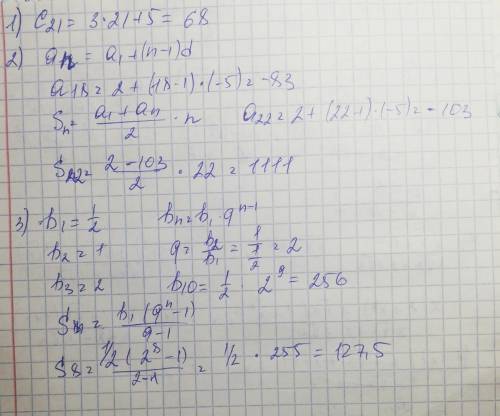 1) C₂₁ = 3·21+5 = 68
2) aₙ = a₁+(n-1)d
a18 = 2 + (18-1)·(-5) = -83
Sₙ = (a₁+aₙ)/2 · n   a₂₂ = 2 + (22-1)·(-5) = -103
S₂₂ = (2-103)/2 · 22 = 1111
3) b₁ = 1/2   bₙ = b₁·qⁿ⁻¹
b₂ = 1   q = b₂/b₁ = 1/(1/2) = 2
b₃ = 2   b10 = 1/2 · 2⁹ = 256
Sₙ = b₁(qⁿ-1)/(q-1)
S₈ = 1/2(2⁸-1)/(2-1) = 1/2 · 255 = 127,5